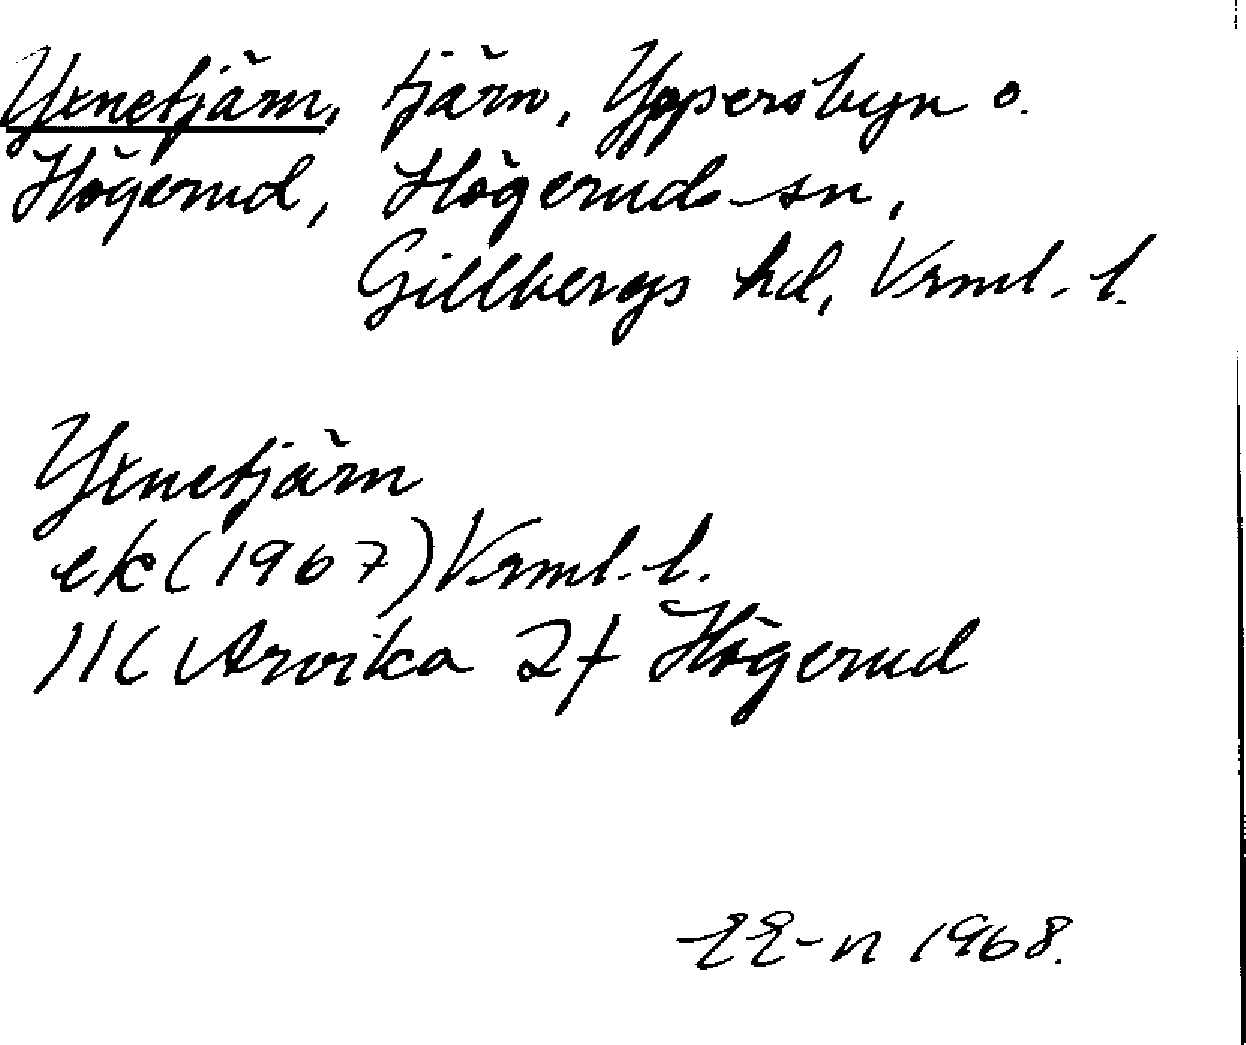 Yxnetjärn, tjärn, Yppersbyn o.
Högerud, Högeruds sn,
Gillbergs hd, Vrml. l.
Yxnetjärn
ek (1967) Vrml. l.
11C Arvika 2f Högerud
EE-n 1968.